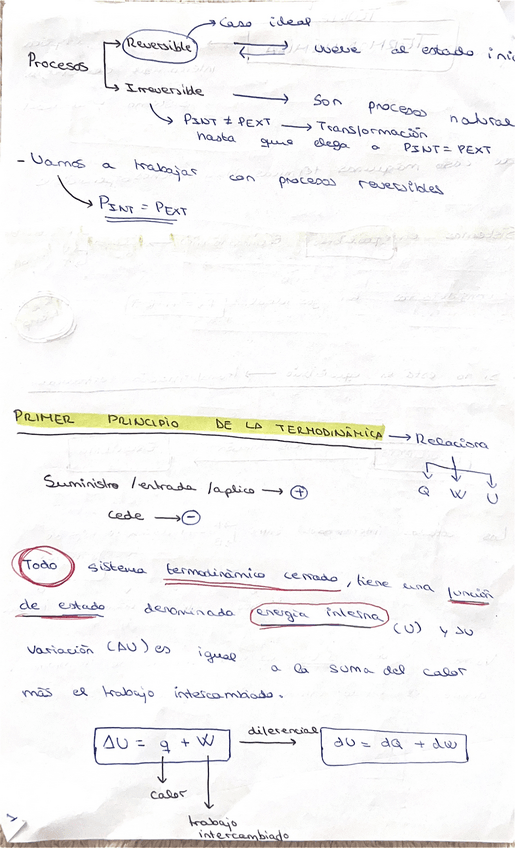 → Caso ideal
Procesos → Reversible ⇄ vuelve de estado
→ Irreversible → Son procesos
PINT ≠ PEXT → Transformación
hasta que llega a PINT = PEXT
- Vamos a trabajar con procesos reversibles
→ PINT = PEXT
PRIMER PRINCIPIO DE LA TERMODINÁMICA → Relaciona
Q W U
Suministro / entrada / aplico → +
cede → -
Todo sistema termodinámico cerrado, tiene una función
de estado denominada energía interna (U) y su
variación (ΔU) es igual a la suma del calor
más el trabajo intercambiado.
ΔU = q + W → diferencial dU = dQ + dW
calor
trabajo
intercambiado